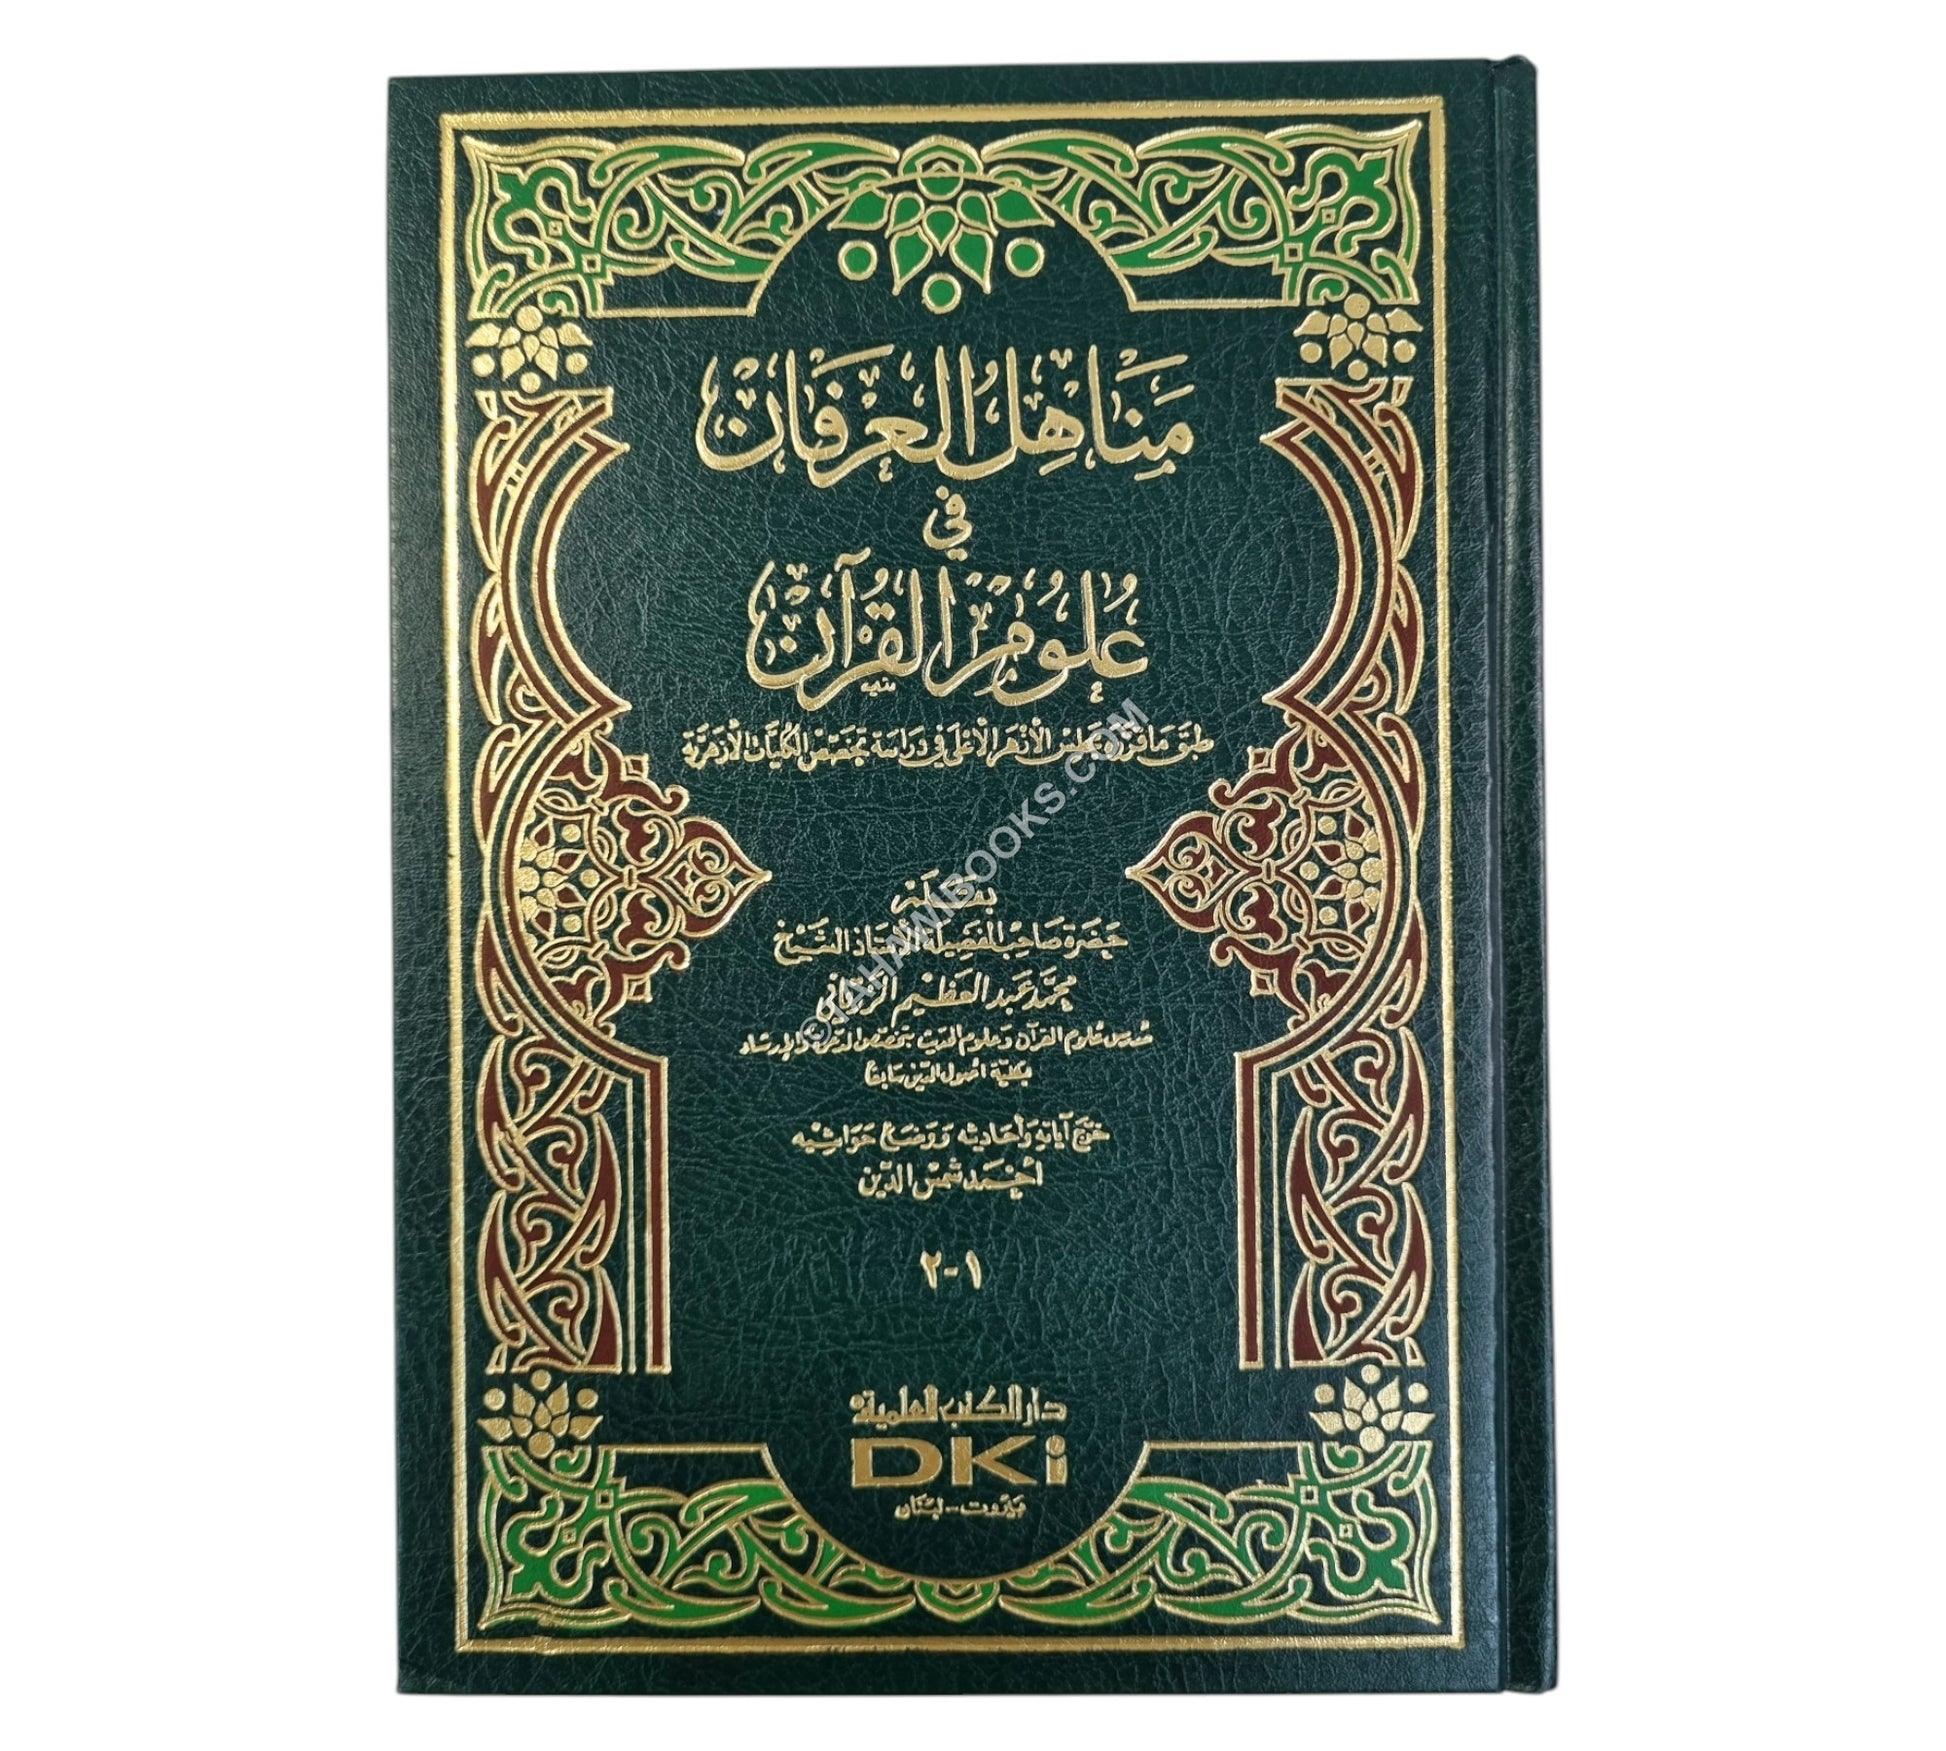 مَنَاهِلُ العِرْفَانْ
في
عُلُومِ القُرْآنْ
طبق مَا قَرَّرَهُ مَجْلِسُ الأَزْهَرِ الأَعْلَى في دِرَاسَة تَخَصّص الكُلِّيَّات الأَزْهَرِيَّة
بقَلَم
حَضرَة صَاحِبُ الفَضِيلَة الأُستَاذ الشَّيْخ
محمّد عَبد العَظيم الزّرقاني
مدرس علوم القرآن وعلوم الحديث بتخصّص الدّعوة والإرشاد
بكلية أصول الدّين سَابقًا
خرّج آيَاته وَأحَاديثه وَوَضَع حَوَاشِيه
أحْمَد شمْس الدّين
١-٢
دار الكتب العلمية
DKi
بَيْرُوت - لبْنَان
© TAHAWIBOOKS.COM